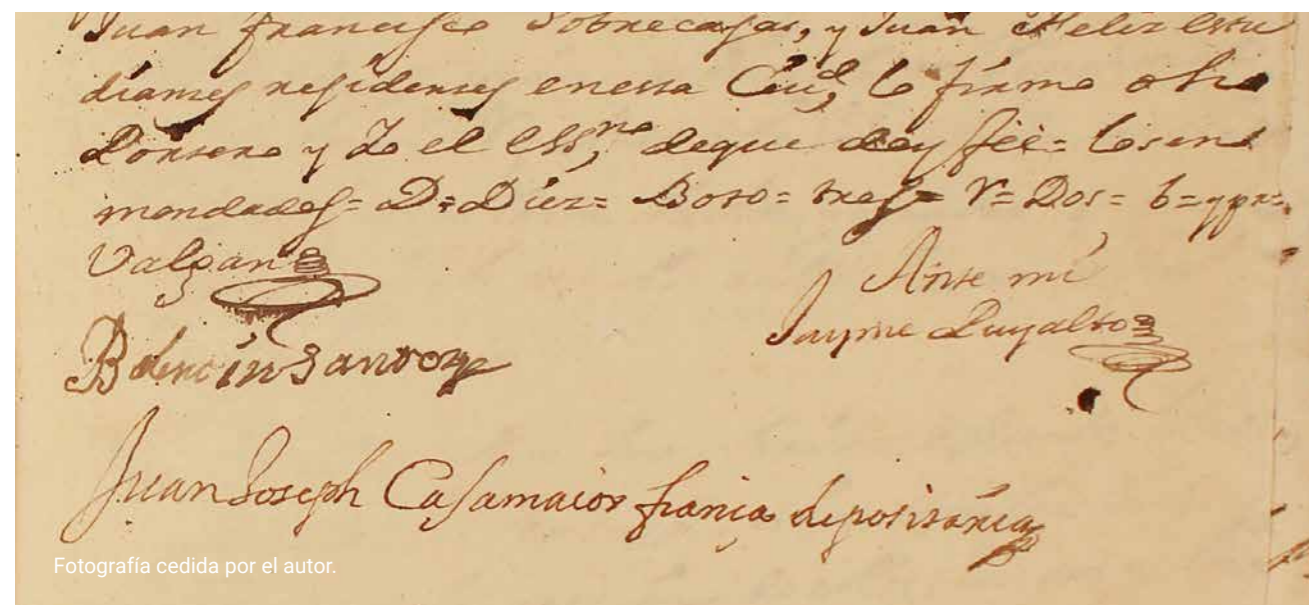 Juan francisco Sobrecasas, y Juan Feliz estu
diantes residentes en essa Ciud, lo firmo otro
Portero y Yo el Essno, deque doy feè= los en
mendados= D= Diez= Boto= tres= V= Dos= 6=
Valgan
Ante mi
Jayme Puyalto
Juan Joseph Casamaior fiança depositária
Fotografía cedida por el autor.